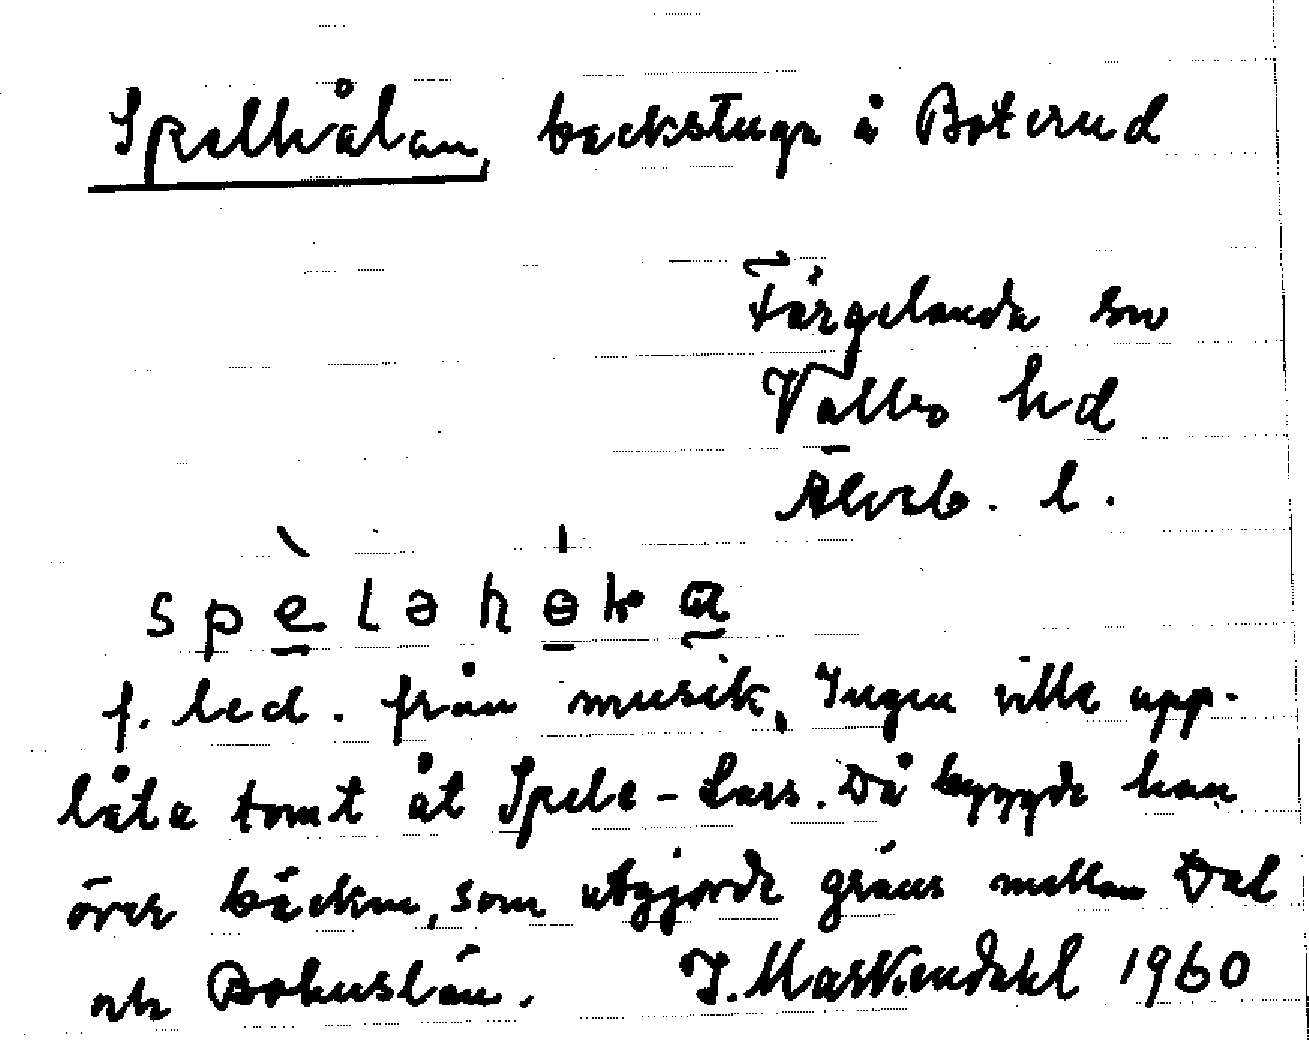 Spelhålan, backstuga å Boterud
Färgelanda sn
Valbo hd
Älvsb. l.
spèləhɵka
f. led. från musik. Ingen ville upp-
låta tomt åt Spele-Lars. Då byggde han
över bäcken, som utgjorde gräns mellan Dal
och Bohuslän. J. Maskendahl 1960